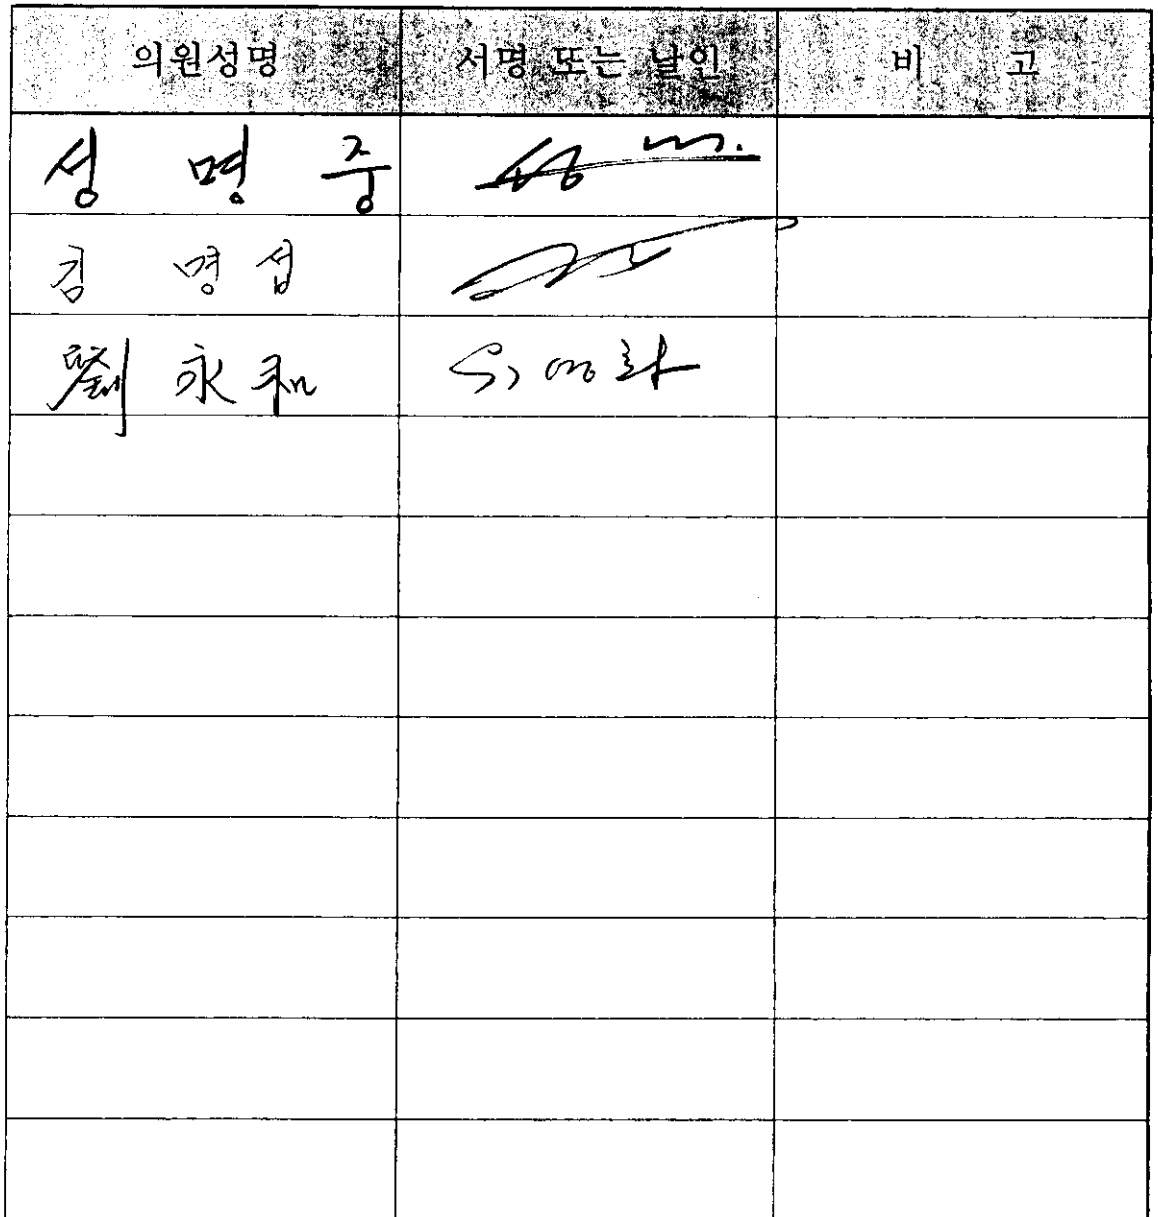 의원성명 서명 또는 날인 비 고
성 명 중
김 명 섭
劉 永 和 유영화